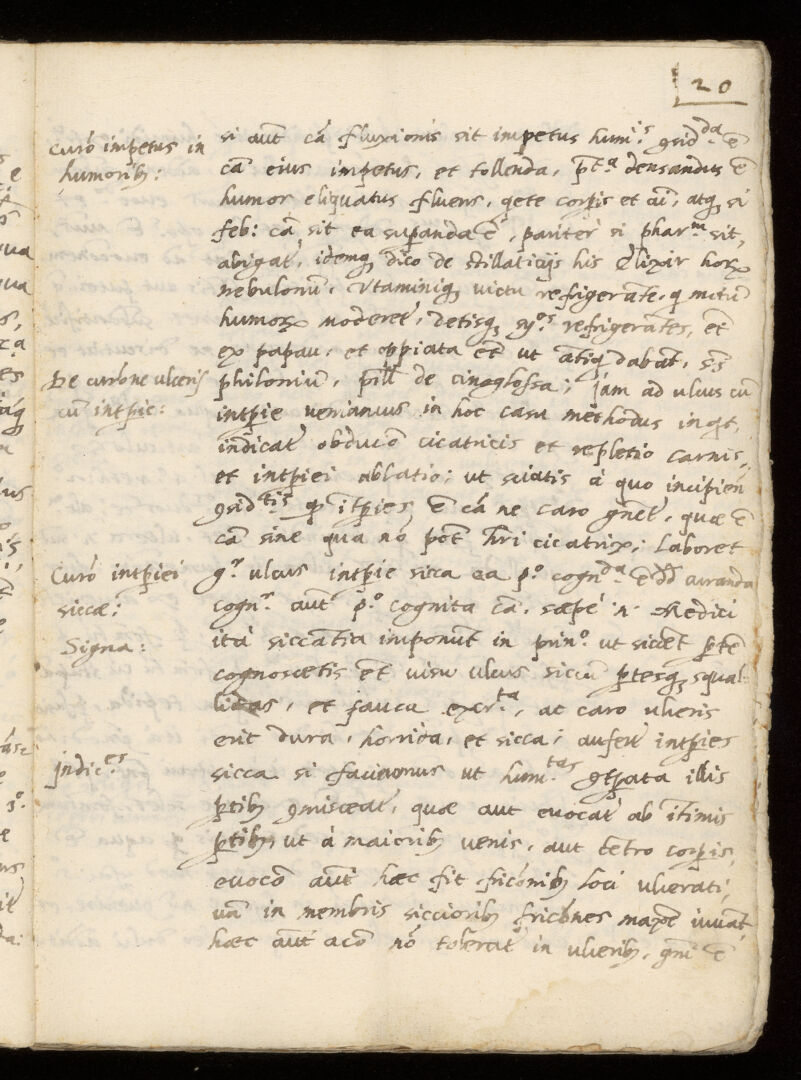 20
curõ impetus in
humorib9:
si aut̃ cã fluxionis sit impetus hum.is 9sid.da ẽ
cã eius impetus, et tollenda, p̃t.a densandus ẽ
humor eliquatus fluens, qete corp̃is et ai͂, atq3 si
feb: cã sit ea sup̃anda ẽ, pariter si phar.m sit,
abigat̃, idemq3 dico de stillaticijs his Elixir horꝝ
nebulonũ, Vtaminiq3 victu refrigerãte, q mitiũ
humorꝝ moderet̃, detisq3 sy.os refrigerãtes, et̃
ex papau, et oppiata et̃ ut ãtiq dabãt, s̃s
De curõne ulceris
cũ intp̃ie:
philoniũ, pill̃ de cinoglossa; Jam ad ulcus cũ
intp̃ie veniamus in hoc casu methodus inq̃t,
indicat̃ obduc̃o cicatricis et repletio carnis,
et intp̃iei ablatio; ut sciatis à quo incipien̄
9sid.tis q̃ ĩtp̃ies ẽ cã ne caro gñet̃, quæ ẽ
cã sine qua nõ pot̃ fieri cicatrix; Laboret
Curõ intp̃iei
siccæ:
g.r ulcus intp̃ie sicca ea p.o cogn.da ẽ dd̃ curanda
cogn.r aut̃ p.o cognita cã, sæpè .n. Medici
Signa:
ità siccãtia imponũt in prin.o ut siccẽt p̃tẽ
cognoscetis et̃ uisu ulcus siccũ p̃tesq3 squal-
lidas, et pauca excr.ta, ac caro ulceris
erit dura, horrida, et sicca; aufert̃ intp̃ies
Jndic.es
sicca si faciamus ut hum.tas 9tp̃ata illis
p̃tib9 9misceat̃, quæ aut euocat̃ ab ĩtimis
p̃tib9, ut à maiorib9 venis, aut tetro corp̃is,
euocõ aut̃ hæc fit fricõnib9 loci ulcerati,
nã in membris siccciorib9 fricõnes maxẽ iuuãt,
hæc aut̃ acõ nõ tolerat̃ in ulcerib9, gñi ẽ